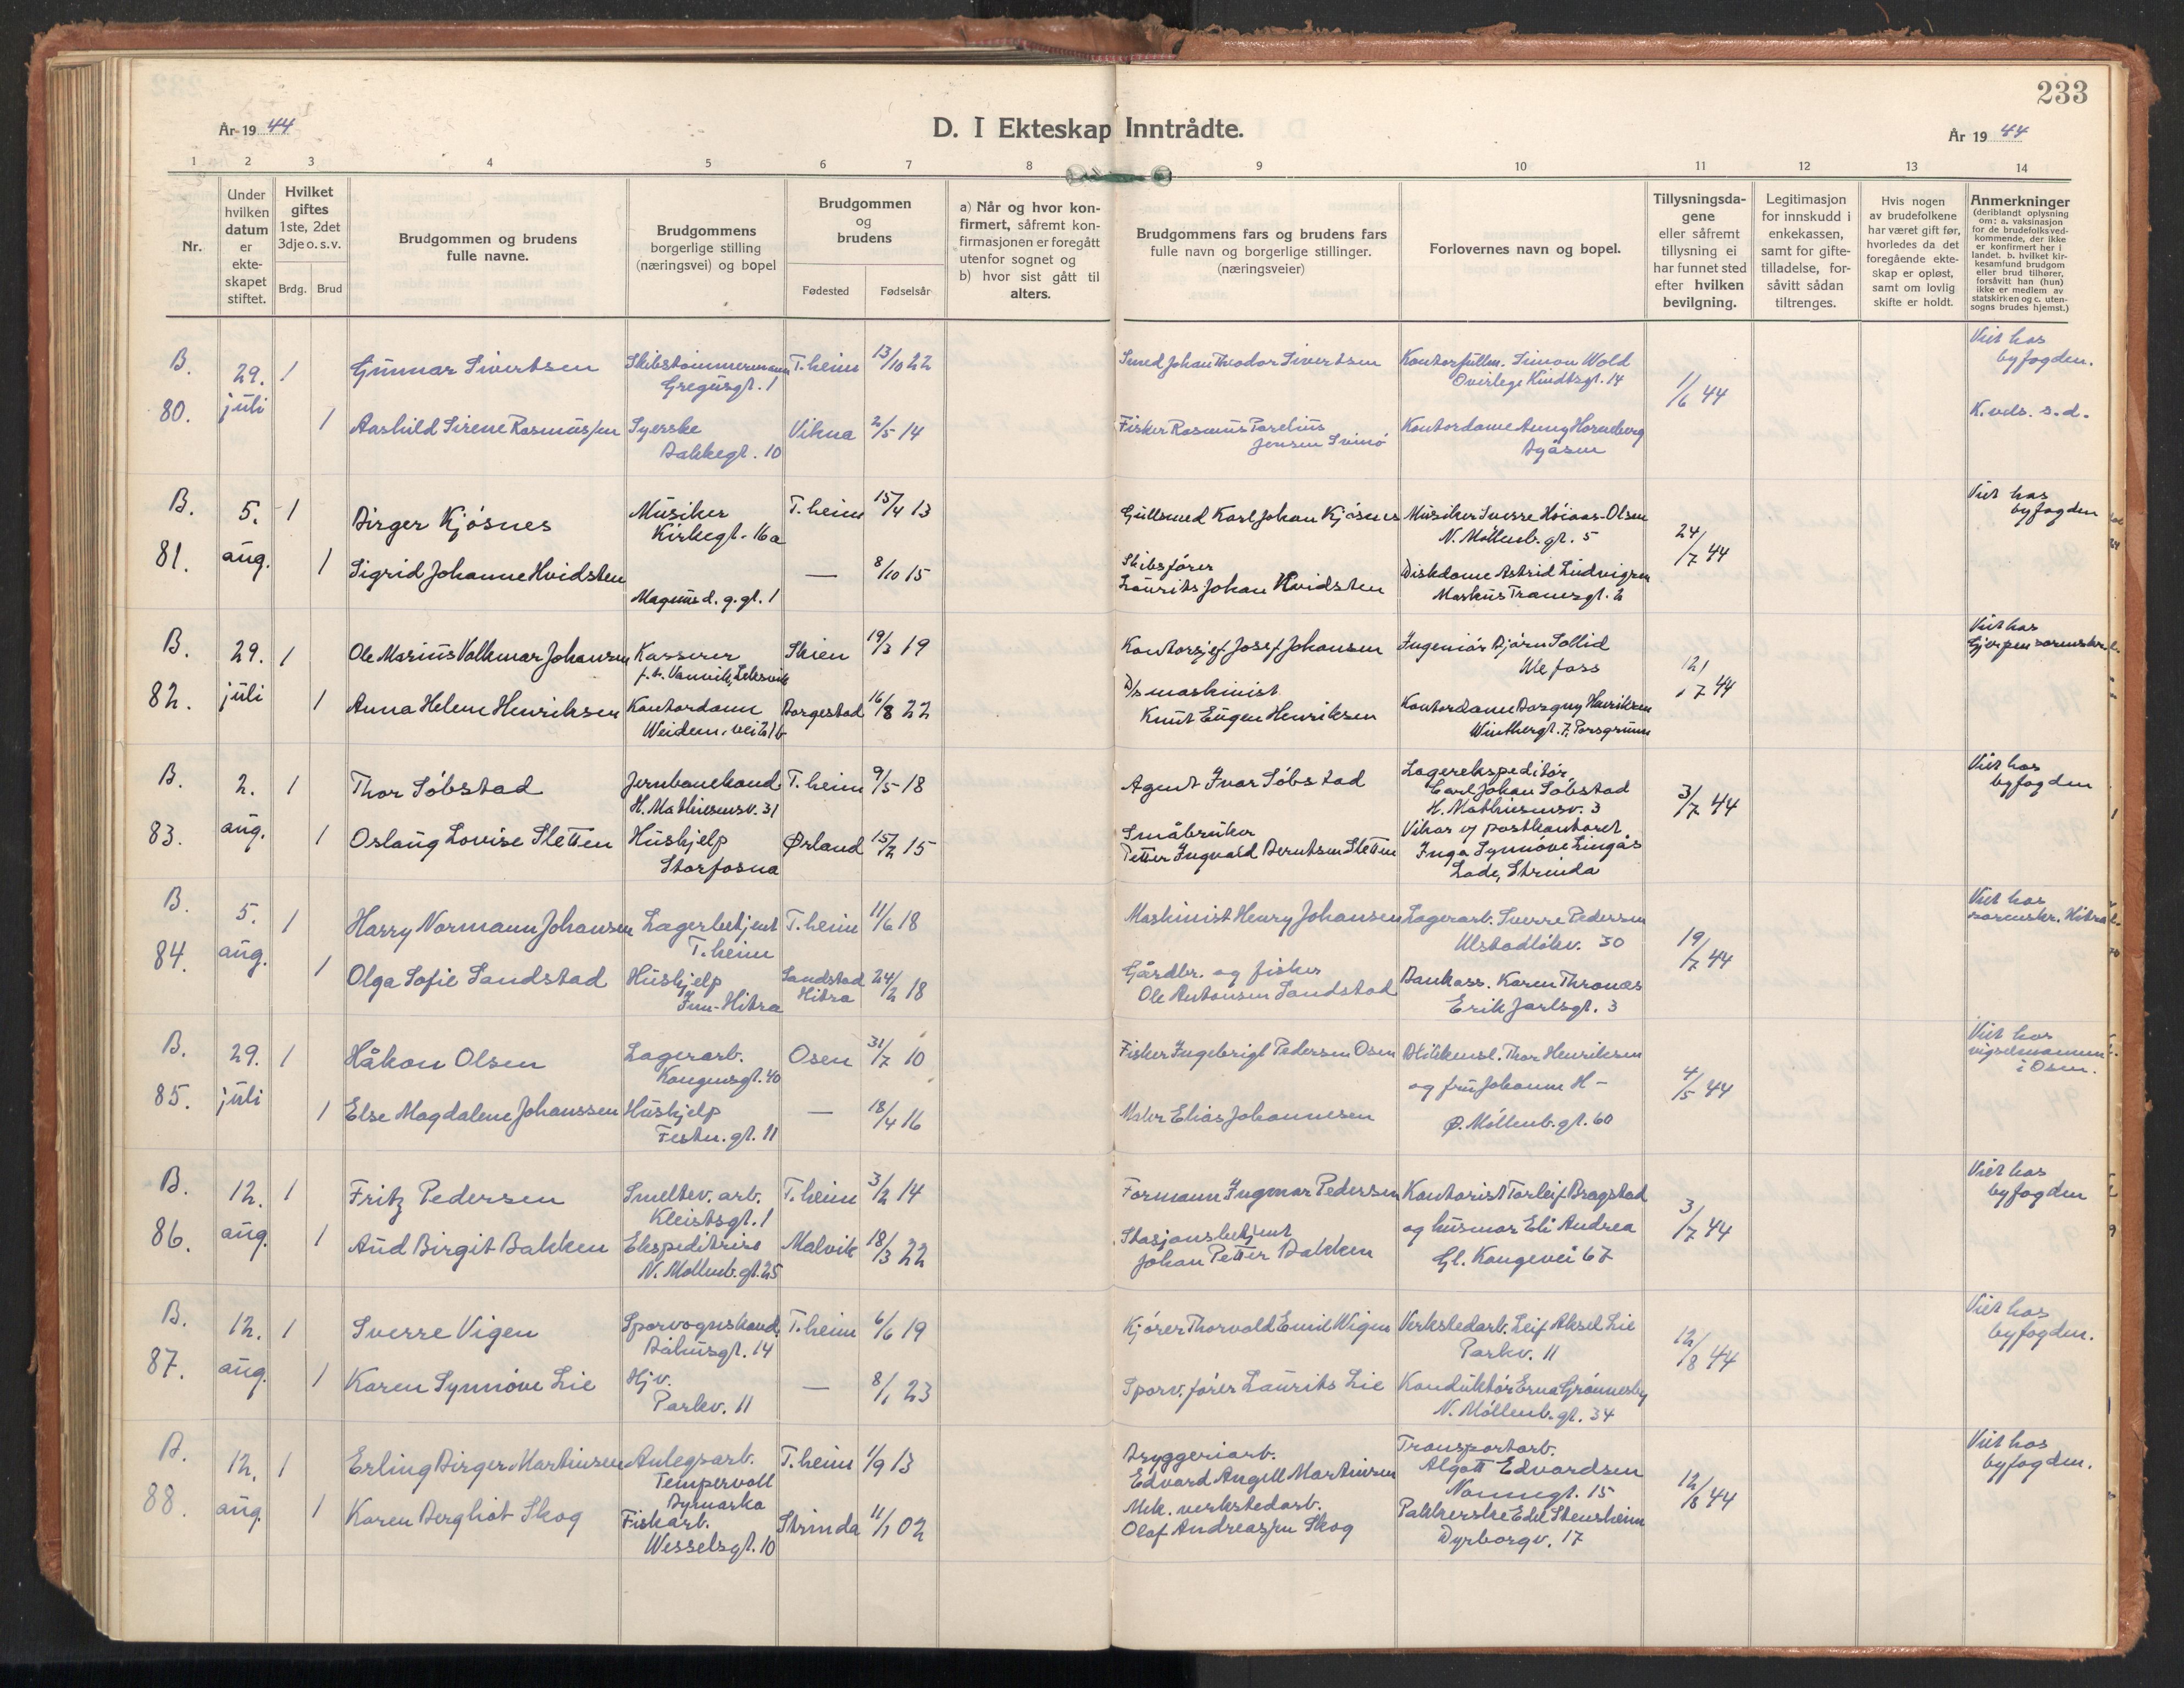 233
År 19 44
D. I Ekteskap Inntrådte.
År 19 44
1 2 3 4 5 6 7 8 9 10 11 12 13 14
Nr.
Under hvilken datum er ekteskapet stiftet.
Hvilket giftes 1ste, 2det 3dje o. s. v.
Brdg. Brud
Brudgommen og brudens fulle navne.
Brudgommens borgerlige stilling (næringsvei) og bopel
Brudgommen og brudens
Fødested Fødselsår
a) Når og hvor konfirmert, såfremt konfirmasjonen er foregått utenfor sognet og
b) hvor sist gått til alters.
Brudgommens fars og brudens fars fulle navn og borgerlige stillinger. (næringsveier)
Forlovernes navn og bopel.
Tillysningsdagene eller såfremt tillysning ei har funnet sted efter hvilken bevilgning.
Legitimasjon for innskudd i enkekassen, samt for giftetilladelse, forsåvitt sådan tiltrenges.
Hvis nogen av brudefolkene har været gift før, hvorledes da det foregående ekteskap er opløst, samt om lovlig skifte er holdt.
Anmerkninger (deriblandt oplysning om: a. vaksinasjon for de brudefolksvedkommende, der ikke er konfirmert her i landet. b. hvilket kirkesamfund brudgom eller brud tilhører, forsåvitt han (hun) ikke er medlem av statskirken og c. utensogns brudes hjemst.)
B. 80. 29. juli
1 Gunnar Sivertsen Skibstömmermann Gregusgt. 1 T.heim 13/10 22
Smed Johan Theodor Sivertsen Kontorfullm. Simon Wold Overlege Kindtsgt. 14
1/6 44
Viet hos byfogden.
1 Aashild Sirene Rasmussen Syerske Bakkegt. 10 Vikna 2/5 14
Fisker Rasmus Parelius Jensen Svinö Kontordame Aenny Horneberg Byåsen
K.vds. s.d.
B. 81. 5. aug.
1 Birger Kjösnes Musiker Kirkegt. 16a T.heim 15/4 13
Gullsmed Karl Johan Kjösnes Musiker Sverre Höiaas-Olsen N. Möllenb.gt. 5
24/7 44
Viet hos byfogden
1 Sigrid Johanne Hvidsten Magnus d. g. gt. 1 — 8/10 15
Skibsförer Laurits Johan Hvidsten Diskdame Astrid Ludvigsen Markus Tranesgt. 2
B. 82. 29. juli
1 Ole Marius Valkmar Johansen Kasserer f.t. Vanvik, Leksvik Skien 19/3 19
Kontorsjef Josef Johansen Ingeniör Björn Sollid Ulefoss
12/7 44
Viet hos Gjerpen sorenskr.
1 Anna Helene Henriksen Kontordame Weidem.vei 21b Borgestad 16/8 22
D/s maskinist Knut Eugen Henriksen Kontordame Dorgny Henriksen Winthergt. 7, Porsgrunn
B. 83. 2. aug.
1 Thor Söbstad Jernbanekond. H. Mathiesensv. 31 T.heim 9/5 18
Agent Ivar Söbstad Lagerekspeditör Carl Johan Söbstad H. Mathiesensv. 3
3/7 44
Viet hos byfogden
1 Oslaug Lovise Sletten Hushjelp Storfosna Ørland 15/2 15
Småbruker Petter Ingvald Berntsen Sletten Vikar v/ postkontoret Inga Synnöve Lingås Lade, Strinda
B. 84. 5. aug.
1 Harry Normann Johansen Lagerbetjent T.heim T.heim 11/6 18
Maskinist Henry Johansen Lagerarb. Sverre Pedersen Ulstadlökv. 30
19/7 44
Viet hos sorenskr. Hitra
1 Olga Sofie Sandstad Hushjelp Inn-Hitra Sandstad Hitra 24/2 18
Gårdbr. og fisker Ole Antonsen Sandstad Bankass. Karen Thronæs Erik Jarlsgt. 3
B. 85. 29. juli
1 Håkon Olsen Lagerarb. Kongensgt. 40 Osen 31/7 10
Fisker Ingebrigt Pedersen Osen Blikkensl. Thor Henriksen og fru Johanne H- Ø. Möllenb.gt. 60
4/5 44
Viet hos vigselmannen i Osen.
1 Else Magdalene Johanssen Hushjelp Festn.gt. 11 — 18/4 16
Maler Elias Johannesen
B. 86. 12. aug.
1 Fritz Pedersen Smeltev.arb. Kleistsgt. 1 T.heim 3/2 14
Formann Ingmar Pedersen Kontorist Torleif Bragstad og husmor Eli Andrea Gl. Kongevei 67
3/7 44
Viet hos byfogden
1 Aud Birgit Bakken Ekspeditrise N. Möllenb.gt. 25 Malvik 18/3 22
Stasjonsbetjent Johan Petter Bakken
B. 87. 12. aug.
1 Sverre Vigen Sporvognskond. Båhusgt. 14 T.heim 6/6 19
Kjörer Thorvald Emil Wigen Verkstedarb. Leif Aksel Lie Parkv. 11
12/8 44
Viet hos byfogden.
1 Karen Synnöve Lie Hj.v. Parkv. 11 — 8/1 23
Sporv.förer Laurits Lie Konduktör Erna Grönnesby N. Möllenb.gt. 34
B. 88. 12. aug.
1 Erling Birger Martinsen Anlegsarb. Tempervoll Bymarka T.heim 1/9 13
Bryggeriarb. Edvard Angell Martinsen Transportarb. Algott Edvardsen Nonnegt. 15
12/8 44
Viet hos byfogden.
1 Karen Berghot Skog Fiskarb. Wesselsgt. 10 Strinda 11/1 02
Mek. verkstedarb. Olaf Andreassen Skog Pakkerske Edel Stensheim Dyrborgv. 17